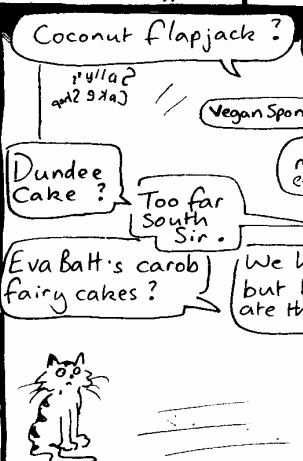 Coconut flapjack ?
Sally's
Cake Shop
Vegan Spon
Dundee
Cake ?
Too far
South
Sir .
Eva Batt's carob
fairy cakes ?
We
but
ate th